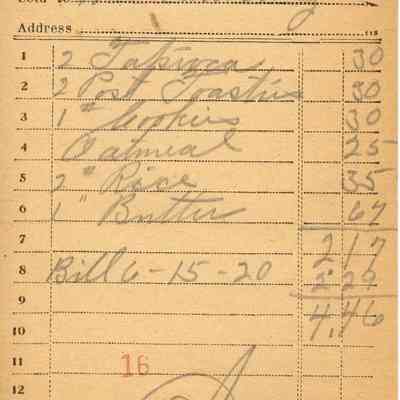 Address 118
1 2 Tapioca 30
2 2 Post Toasties 30
3 1 # Cookies 30
4 Oatmeal 25
5 2 " Rice 35
6 1 " Butter 67
7 2 17
8 Bill 6-15-20 2 29
9 4.46
10
11 16
12